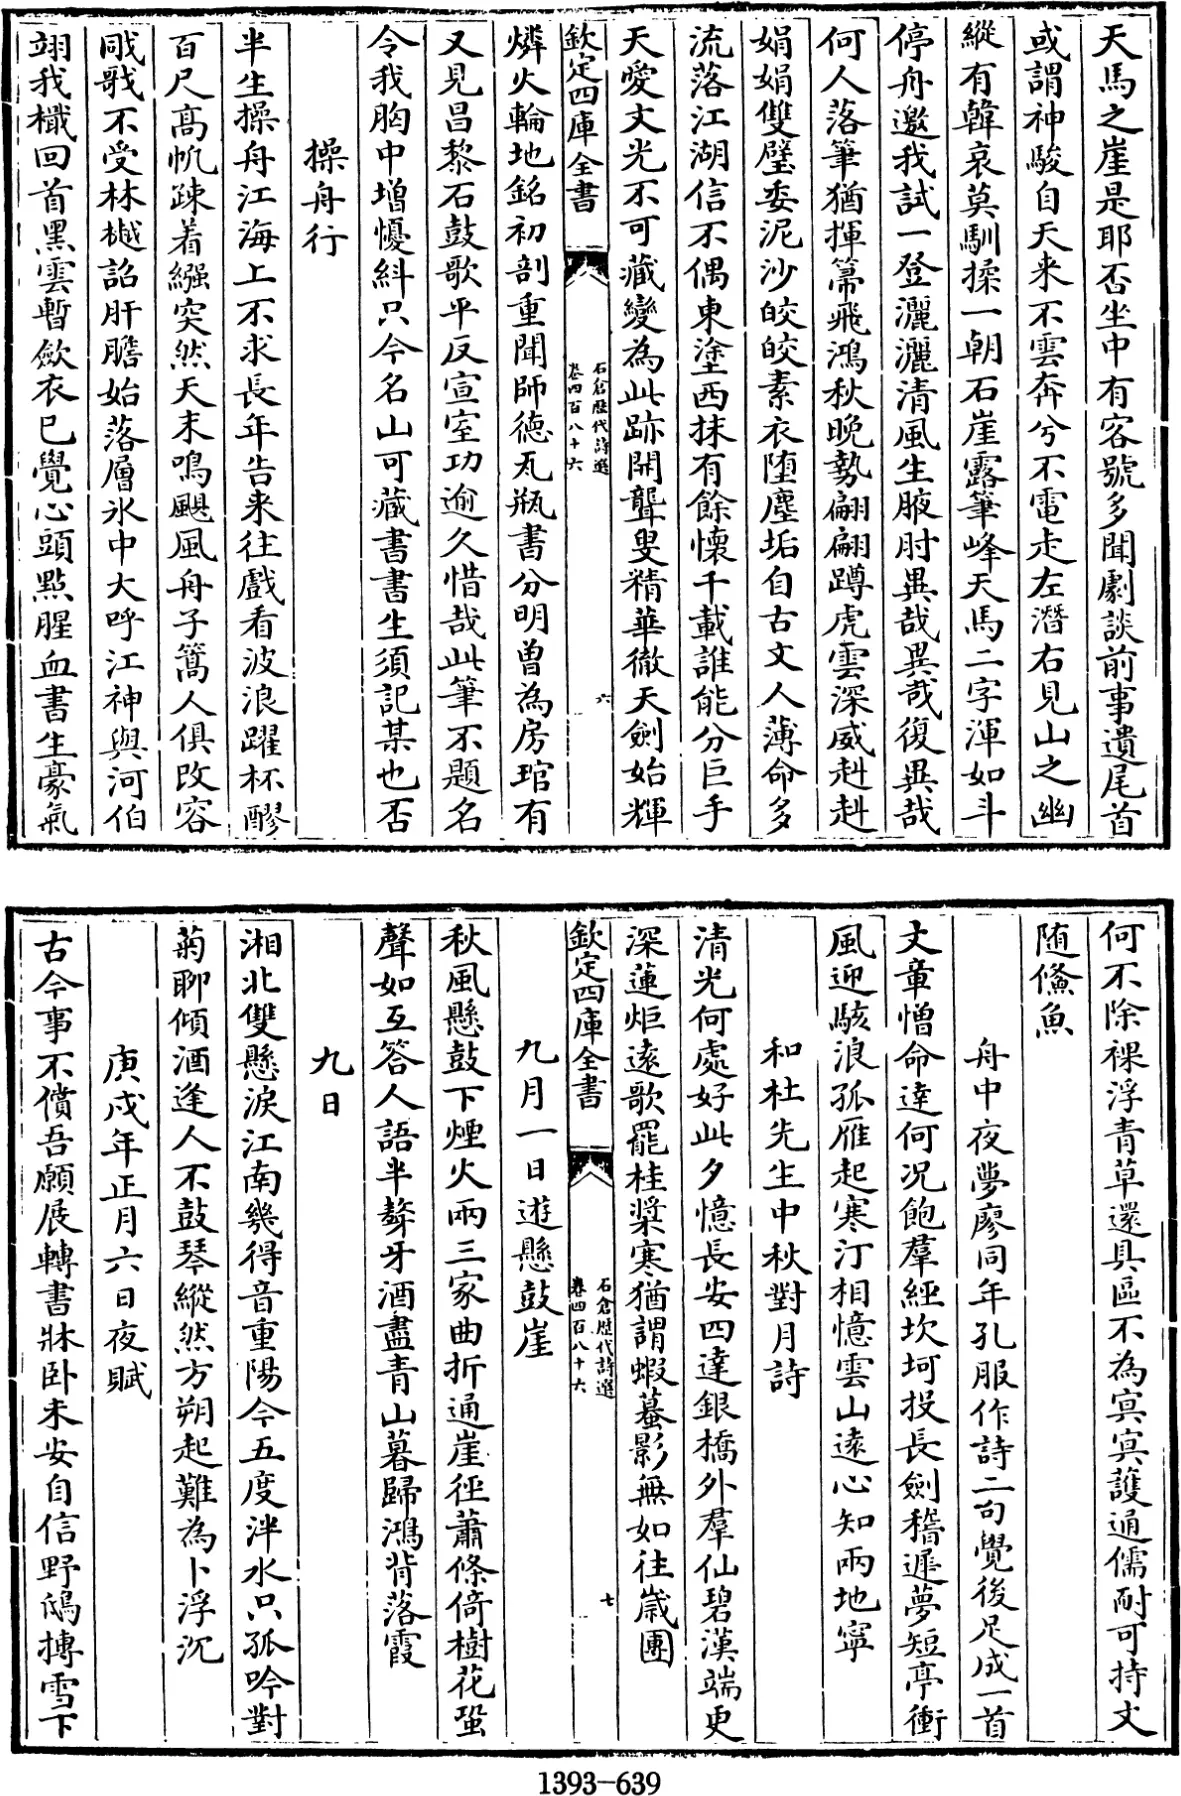 天馬之崖是耶否坐中有客號多聞劇談前事遺尾首
或謂神駿自天来不雲奔兮不電走左潛右見山之幽
縱有韓哀莫馴揉一朝石崖露筆峰天馬二字渾如斗
停舟邀我試一登灑灑清風生腋肘異哉異哉復異哉
何人落筆猶揮帚飛鴻秋晩勢翩翩蹲虎雲深威赳赳
娟娟雙璧委泥沙皎皎素衣堕塵垢自古文人薄命多
流落江湖信不偶東塗西抹有餘懷千載誰能分巨手
天愛文光不可藏變為此跡開聾瞍精華徹天劍始輝
欽定四庫全書
石倉歷代詩選
卷四百八十六
六
燐火輪地銘初剖重聞師徳瓦瓶書分明曾為房琯有
又見昌黎石鼓歌平反宣室功逾久惜哉此筆不題名
令我胸中增懮糾只今名山可藏書書生須記某也否
操舟行
半生操舟江海上不求長年告来往戲看波浪躍杯醪
百尺髙帆疎着繈突然天末鳴颶風舟子篙人俱改容
戙戙不受林樾詔肝膽始落層氷中大呼江神與河伯
翊我檥回首黑雲暫歛衣已覺心頭點腥血書生豪氣
何不除裸浮青草還具區不為寅寅護通儒耐可持文
随鯈魚
舟中夜夢廖同年孔服作詩二句覺後足成一首
文章憎命達何况飽羣經坎坷投長劍稽遲夢短亭衝
風迎駭浪孤雁起寒汀相憶雲山遠心知兩地寧
和杜先生中秋對月詩
清光何處好此夕憶長安四達銀橋外羣仙碧漢端更
深蓮炬遠歌罷桂槳寒猶謂蝦蟇影無如往歲團
欽定四庫全書
石倉歷代詩選
卷四百八十六
七
九月一日遊懸鼓崖
秋風懸鼓下煙火兩三家曲折通崖徑蕭條倚樹花蛩
聲如互答人語半聱牙酒盡青山暮歸鴻背落霞
九日
湘北雙懸淚江南幾得音重陽今五度泮水只孤吟對
菊聊傾酒逢人不鼓琴縱然方朔起難為卜浮沉
庚戌年正月六日夜賦
古今事不償吾願展轉書牀卧未安自信野鴻摶雪下